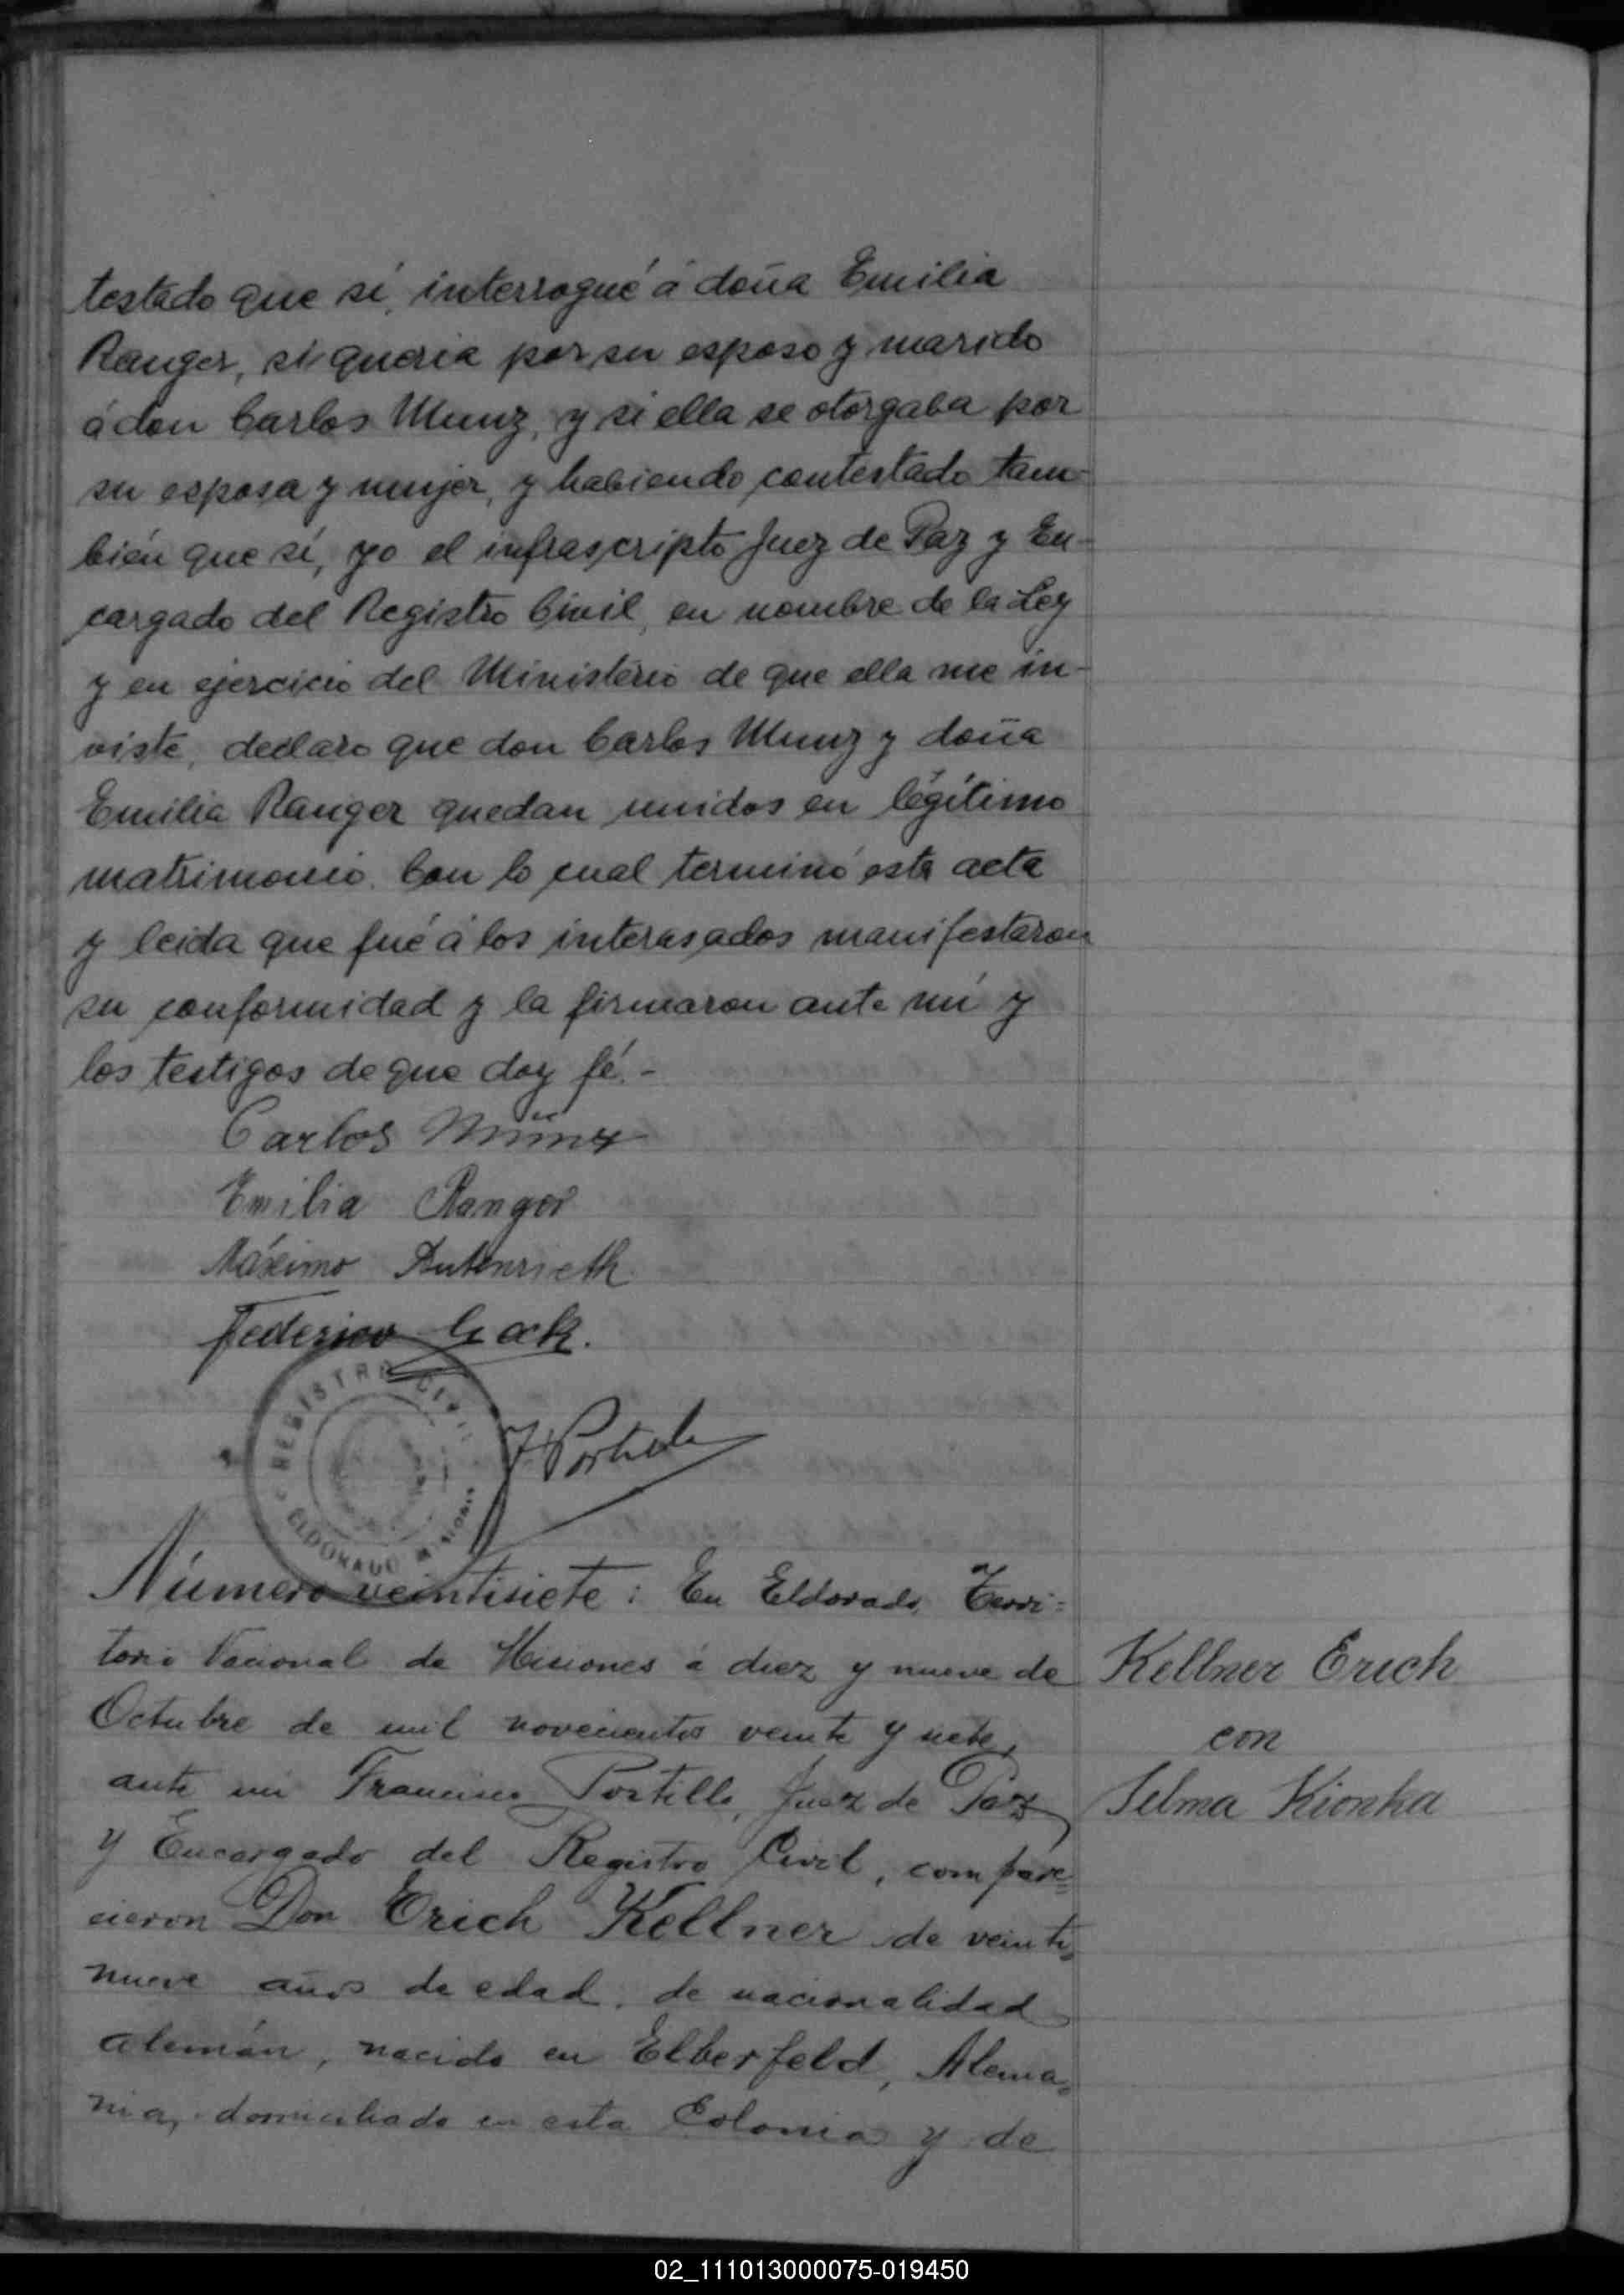 testado que sí, interrogué á doña Emilia
Ranger, si queria por su esposo y marido
á don Carlos Munz, y si ella se otorgaba por
su esposa y mujer, y habiendo contestado tam-
bién que sí, yo el infrascripto Juez de Paz y En-
cargado del Registro Civil, en nombre de la Ley
y en ejercicio del Ministerio de que ella me in-
viste, declaro que don Carlos Munz y doña
Emilia Ranger quedan unidos en légítimo
matrimonio. Con lo cual terminó esta acta
y leida que fué á los interasados manifestaron
su conformidad y la firmaron ante mí y
los testigos de que doy fé.-
Carlos Münz
Emilia Ranger
Máximo Autenrieth
Federico
REGISTRO CIVIL
ELDORADO MISIONES
F. Portillo
Número veintisiete: En Eldorado, Terri=
torio Nacional de Misiones á diez y nueve de
Octubre de mil novecientos veinte y siete,
ante mi Francisco Portillo, Juez de Paz
y Encargado del Registro Civil, compare=
cieron Don Erich Kellner de veinti=
nueve años de edad, de nacionalidad
alemán, nacido en Elberfeld, Alema=
nia, domiciliado en esta Colonia y de
Kellner Erich
con
Selma Kionka
02_111013000075-019450